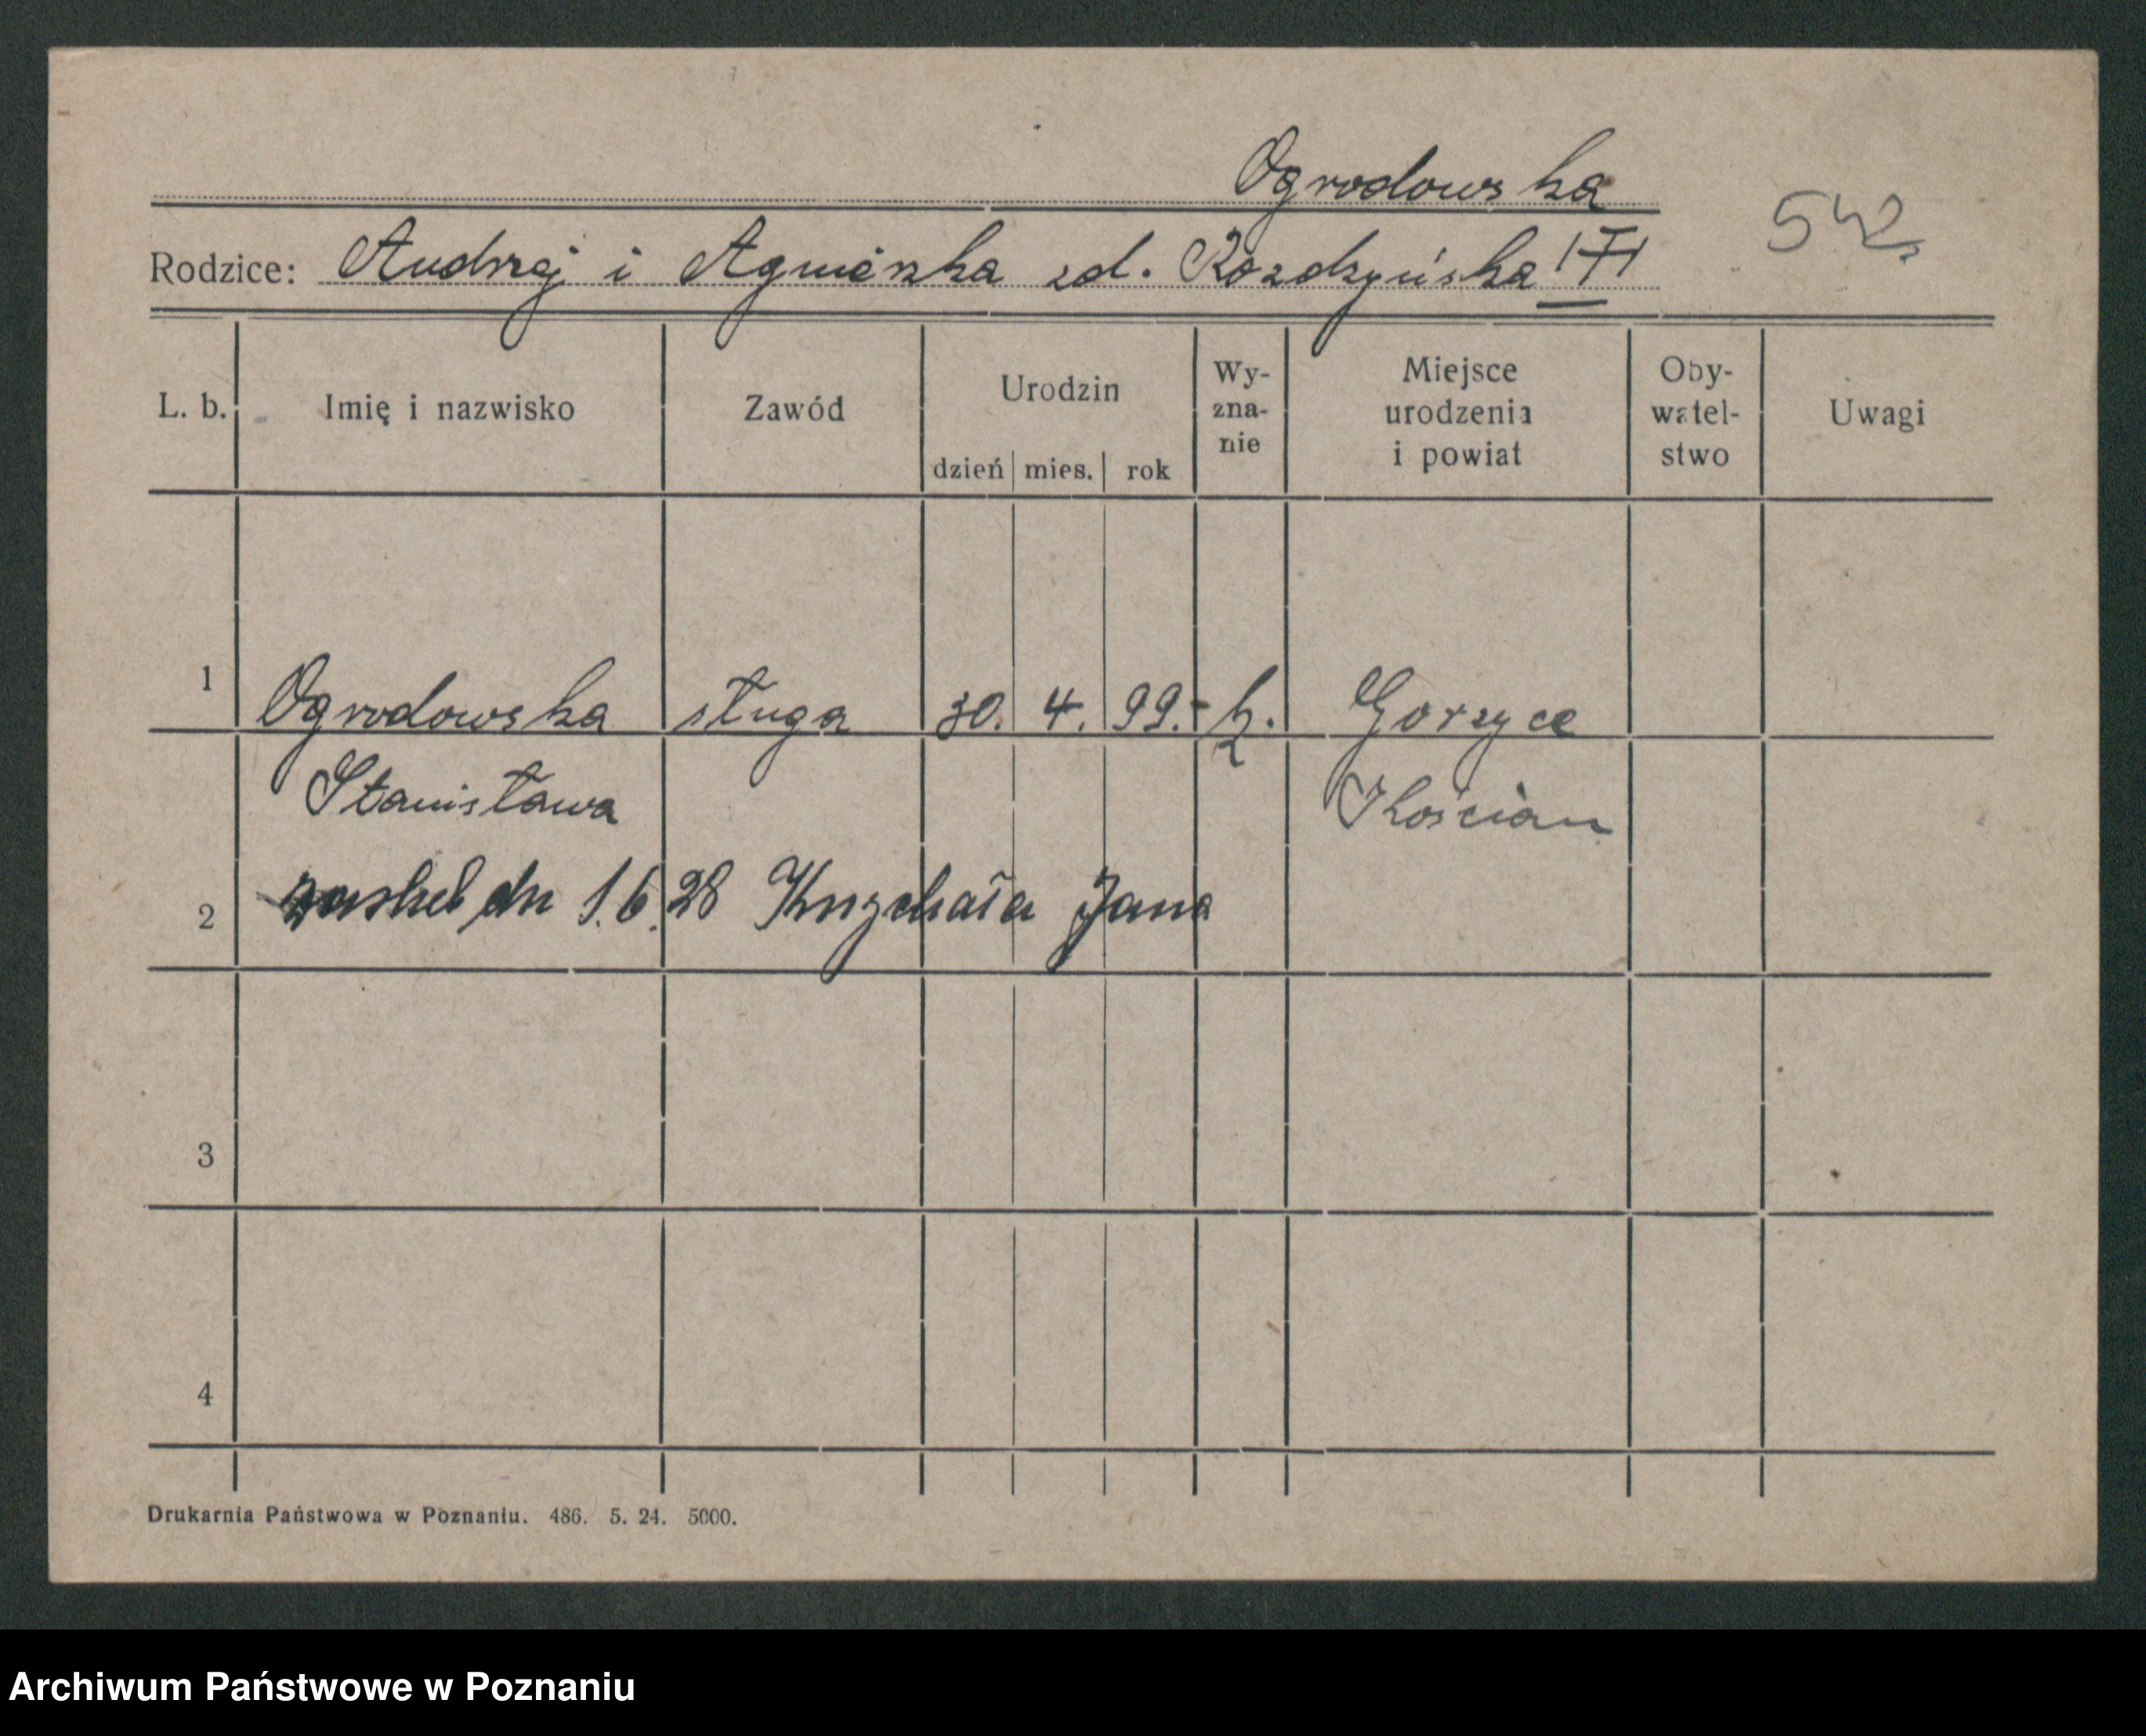 Ogrodowska
Rodzice: Andrzej i Agnieszka zd. Rozdzyńska
L. b. Imię i nazwisko Zawód Urodzin dzień mies. rok Wy-zna-nie Miejsce urodzenia i powiat Oby-watel-stwo Uwagi
1 Ogrodowska sługa 30. 4. 99. k. Gorzyce
Stanisława Kościan
2 dn 1.6.28 Jana
3
4
Drukarnia Państwowa w Poznaniu. 486. 5. 24. 5000.
Archiwum Państwowe w Poznaniu